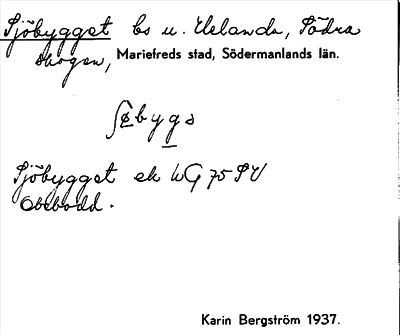 Sjöbygget bs u. Ueland, Södra
skogen, Mariefreds stad, Södermanlands län.
ʃøbygə
Sjöbygget ek WG 75 SV
Obebodd.
Karin Bergström 1937.